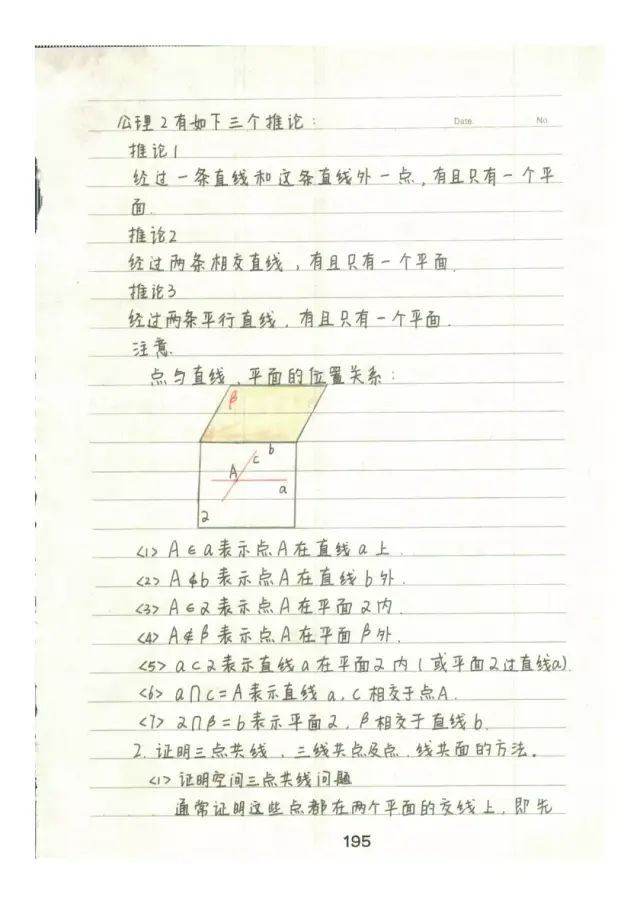 公理2有如下三个推论:
Date. No.
推论1
经过一条直线和这条直线外一点,有且只有一个平
面.
推论2
经过两条相交直线,有且只有一个平面.
推论3
经过两条平行直线,有且只有一个平面.
注意
点与直线、平面的位置关系:
β
b
c
A
a
2
<1> A∈a表示点A在直线a上.
<2> A∉b表示点A在直线b外.
<3> A∈2表示点A在平面2内.
<4> A∉β表示点A在平面β外.
<5> a⊂2表示直线a在平面2内(或平面2过直线a).
<6> a∩c=A表示直线a,c相交于点A.
<7> 2∩β=b表示平面2,β相交于直线b.
2.证明三点共线、三线共点及点、线共面的方法。
<1> 证明空间三点共线问题
通常证明这些点都在两个平面的交线上,即先
195